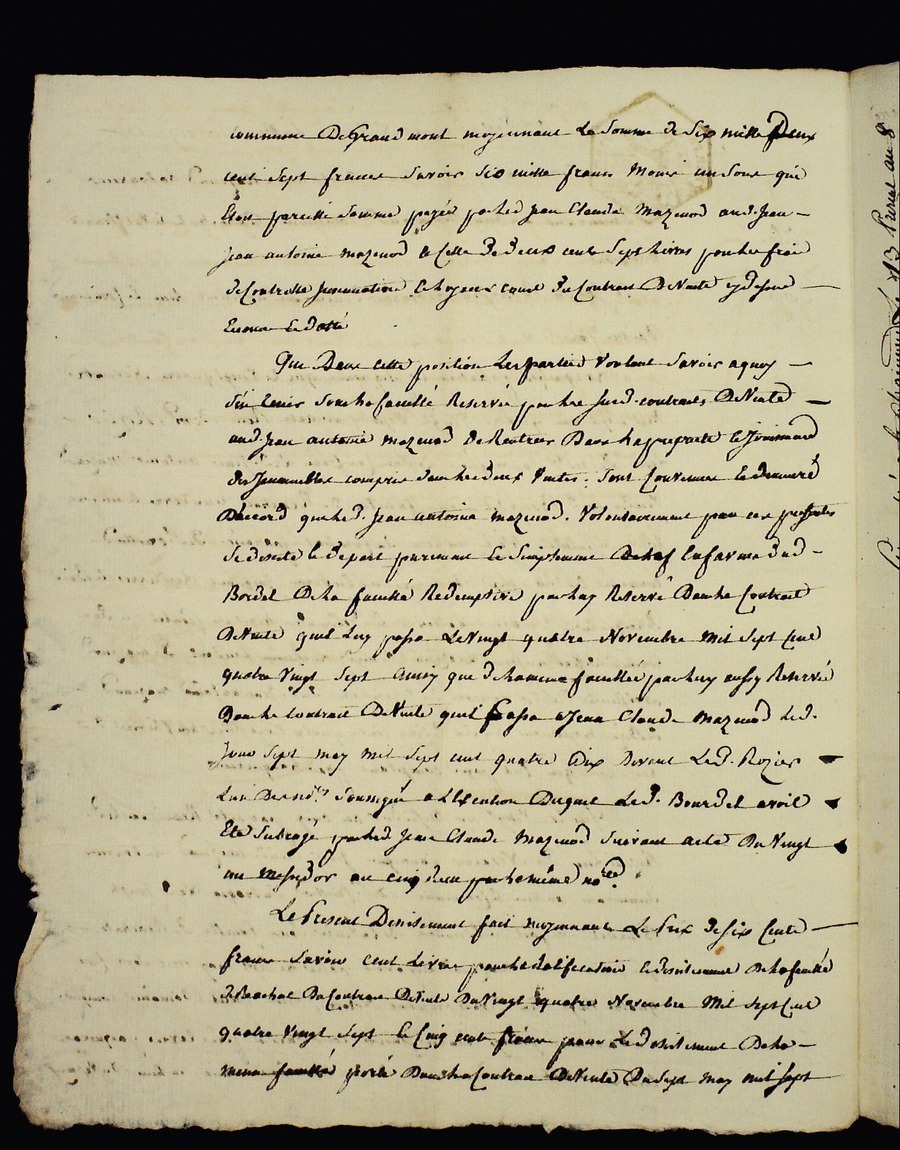 commune De Grand mont moyennant La Somme de Six mille Deux
cent Sept francs Savoir Six mille francs Moins un Sous que
Etoit pareille Somme payée par led Jean Claude Mazenod aud. Jean
Jean antoine mazenod & Celle De Deux cent Sept Livres pour les frais
de Controlle Insinuation & loyeux cout du Contract De Vente
Encore Endatté
Que Dans cette position Les parties Voulant Savoir a quoy
S'en tenir Sur la faculté Reservée par les Susd. contracts De Vente
aud. Jean antoine mazenod De Rentrer Dans la propriété & Jouissance
des Immeubles compris dans les deux Ventes. Sont Convenus & demeuré
D'accord que led. Jean antoine Mazenod. Volontairement par ces presentes
Se desiste & depart purement & Simplement En faveur dud
Bordel De la faculté Redemptive par luy Reservé Dans le Contract
De Vente quil Luy passa Le Vingt quatre Novembre Mil Sept Cent
quatre Vingt Sept Ainsy que de la meme faculté par luy aussy Reservée
Dans le contract De Vente quil passa a Jean Claude Mazenod Led.
Jour Sept may Mil Sept cent quatre Dix Devant Led. Rozier
L'un Des no.res Soussigné a L'Exention Duquel Led. Bourdel avoit
Eté Subrogé par led. Jean Claude Mazenod Suivant acte Du Vingt
un Messidor an cinq Reçu par le même no.re
Le Present Desistement fait moyennant Le Prix de Six Cents
francs Savoir Cent Livres pour la Ratification & desistement De la faculté
De Rachat Du Contract De Vente Du Vingt quatre Novembre Mil Sept Cent
quatre Vingt Sept & Cinq cent francs pour Le desistement De la
meme faculté porté Dans le Contract De Vente Du Sept may mil Sept